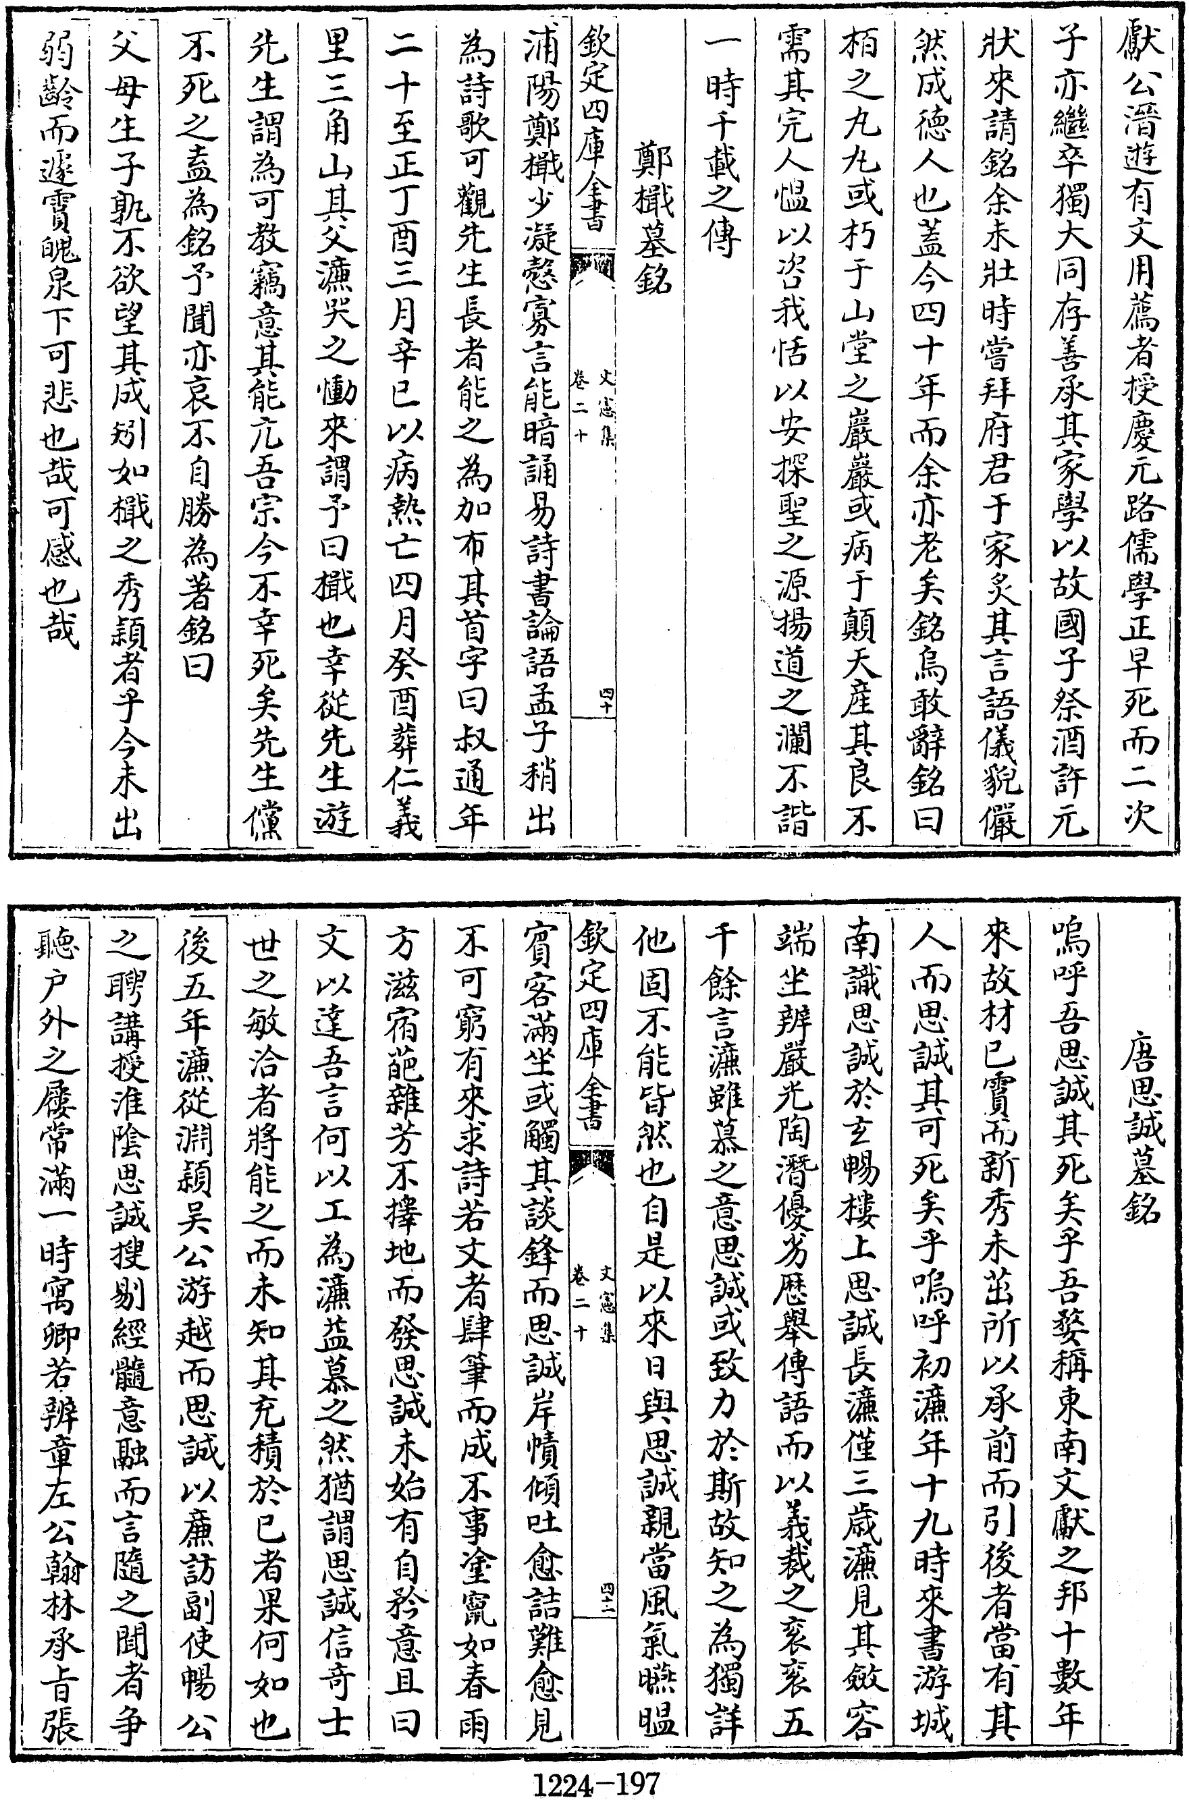 獻公溍遊有文用薦者授慶元路儒學正早死而二次
子亦繼卒獨大同存善承其家學以故國子祭酒許元
狀來請銘余未壯時嘗拜府君于家炙其言語儀貌儼
然成德人也蓋今四十年而余亦老矣銘烏敢辭銘曰
栢之丸丸或朽于山堂之巖巖或病于顛天産其良不
需其完人愠以咨我恬以安探聖之源揚道之瀾不諧
一時千載之傳
鄭檝墓銘
浦陽鄭檝少凝慤寡言能暗誦易詩書論語孟子稍出
欽定四庫全書
文憲集
卷二十
四十
為詩歌可觀先生長者能之為加布其首字曰叔通年
二十至正丁酉三月辛巳以病熱亡四月癸酉葬仁義
里三角山其父濂哭之慟來謂予曰檝也幸從先生遊
先生謂為可教竊意其能亢吾宗今不幸死矣先生儻
不死之盍為銘予聞亦哀不自勝為著銘曰
父母生子孰不欲望其成矧如檝之秀穎者乎今未出
弱齡而遽霣魄泉下可悲也哉可感也哉
唐思誠墓銘
嗚呼吾思誠其死矣乎吾婺稱東南文獻之邦十數年
來故材已霣而新秀未茁所以承前而引後者當有其
人而思誠其可死矣乎嗚呼初濂年十九時來書游城
南識思誠於玄暢樓上思誠長濂僅三歲濂見其斂容
端坐辨嚴光陶潛優劣歷舉傳語而以義裁之衮衮五
千餘言濂雖慕之意思誠或致力於斯故知之為獨詳
他固不能皆然也自是以來日與思誠親當風氣曣㬈
欽定四庫全書
文憲集
卷二十
四十一
賓客滿坐或觸其談鋒而思誠岸幘傾吐愈詰難愈見
不可窮有來求詩若文者肆筆而成不事塗竄如春雨
方滋宿葩雜芳不擇地而發思誠未始有自矜意且曰
文以達吾言何以工為濂益慕之然猶謂思誠信奇士
世之敏洽者將能之而未知其充積於已者果何如也
後五年濂從淵穎吴公游越而思誠以亷訪副使暢公
之聘講授淮陰思誠搜剔經髓意融而言隨之聞者争
聽户外之屨常滿一時寓卿若辨章左公翰林承㫖張
1224-197